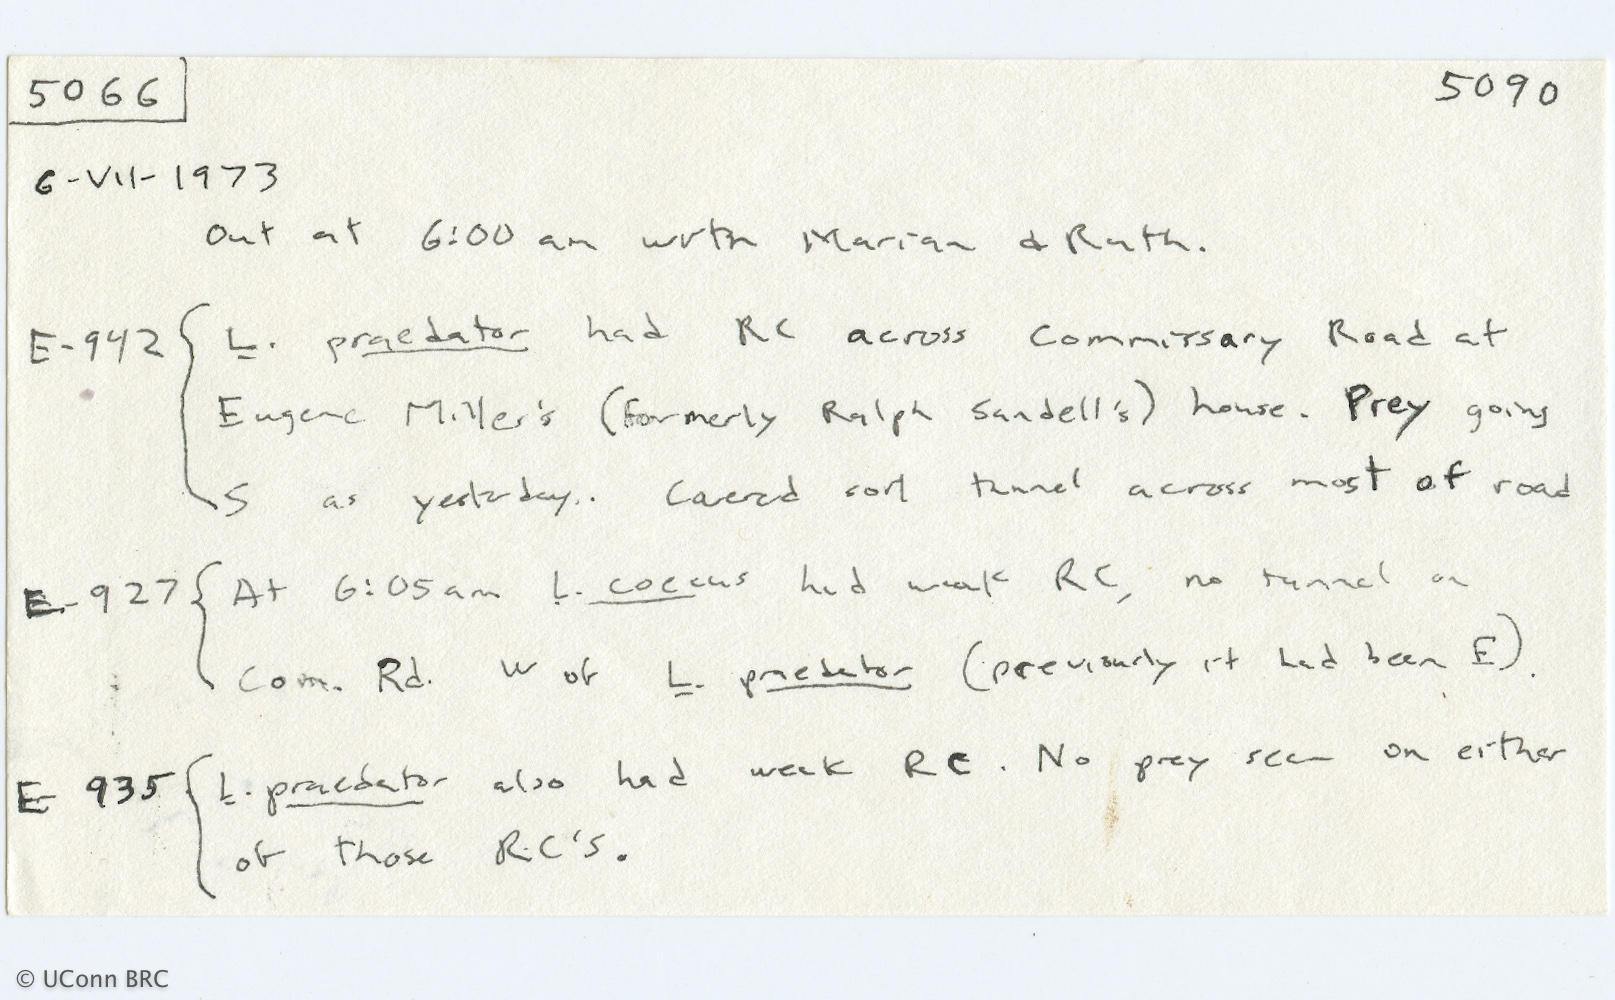 5066 5090
6-VII-1973
Out at 6:00 am with Marian & Ruth.
E-942 L. praedator had RC across Commissary Road at
Eugene Miller's (formerly Ralph Sandell's) house. Prey going
S as yesterday. Covered soil tunnel across most of road
E-927 At 6:05 am L. coecus had weak RC, no tunnel on
Com. Rd. W of L. praedator (previously it had been E).
E-935 L. praedator also had weak RC. No prey seen on either
of those RC's.
© UConn BRC